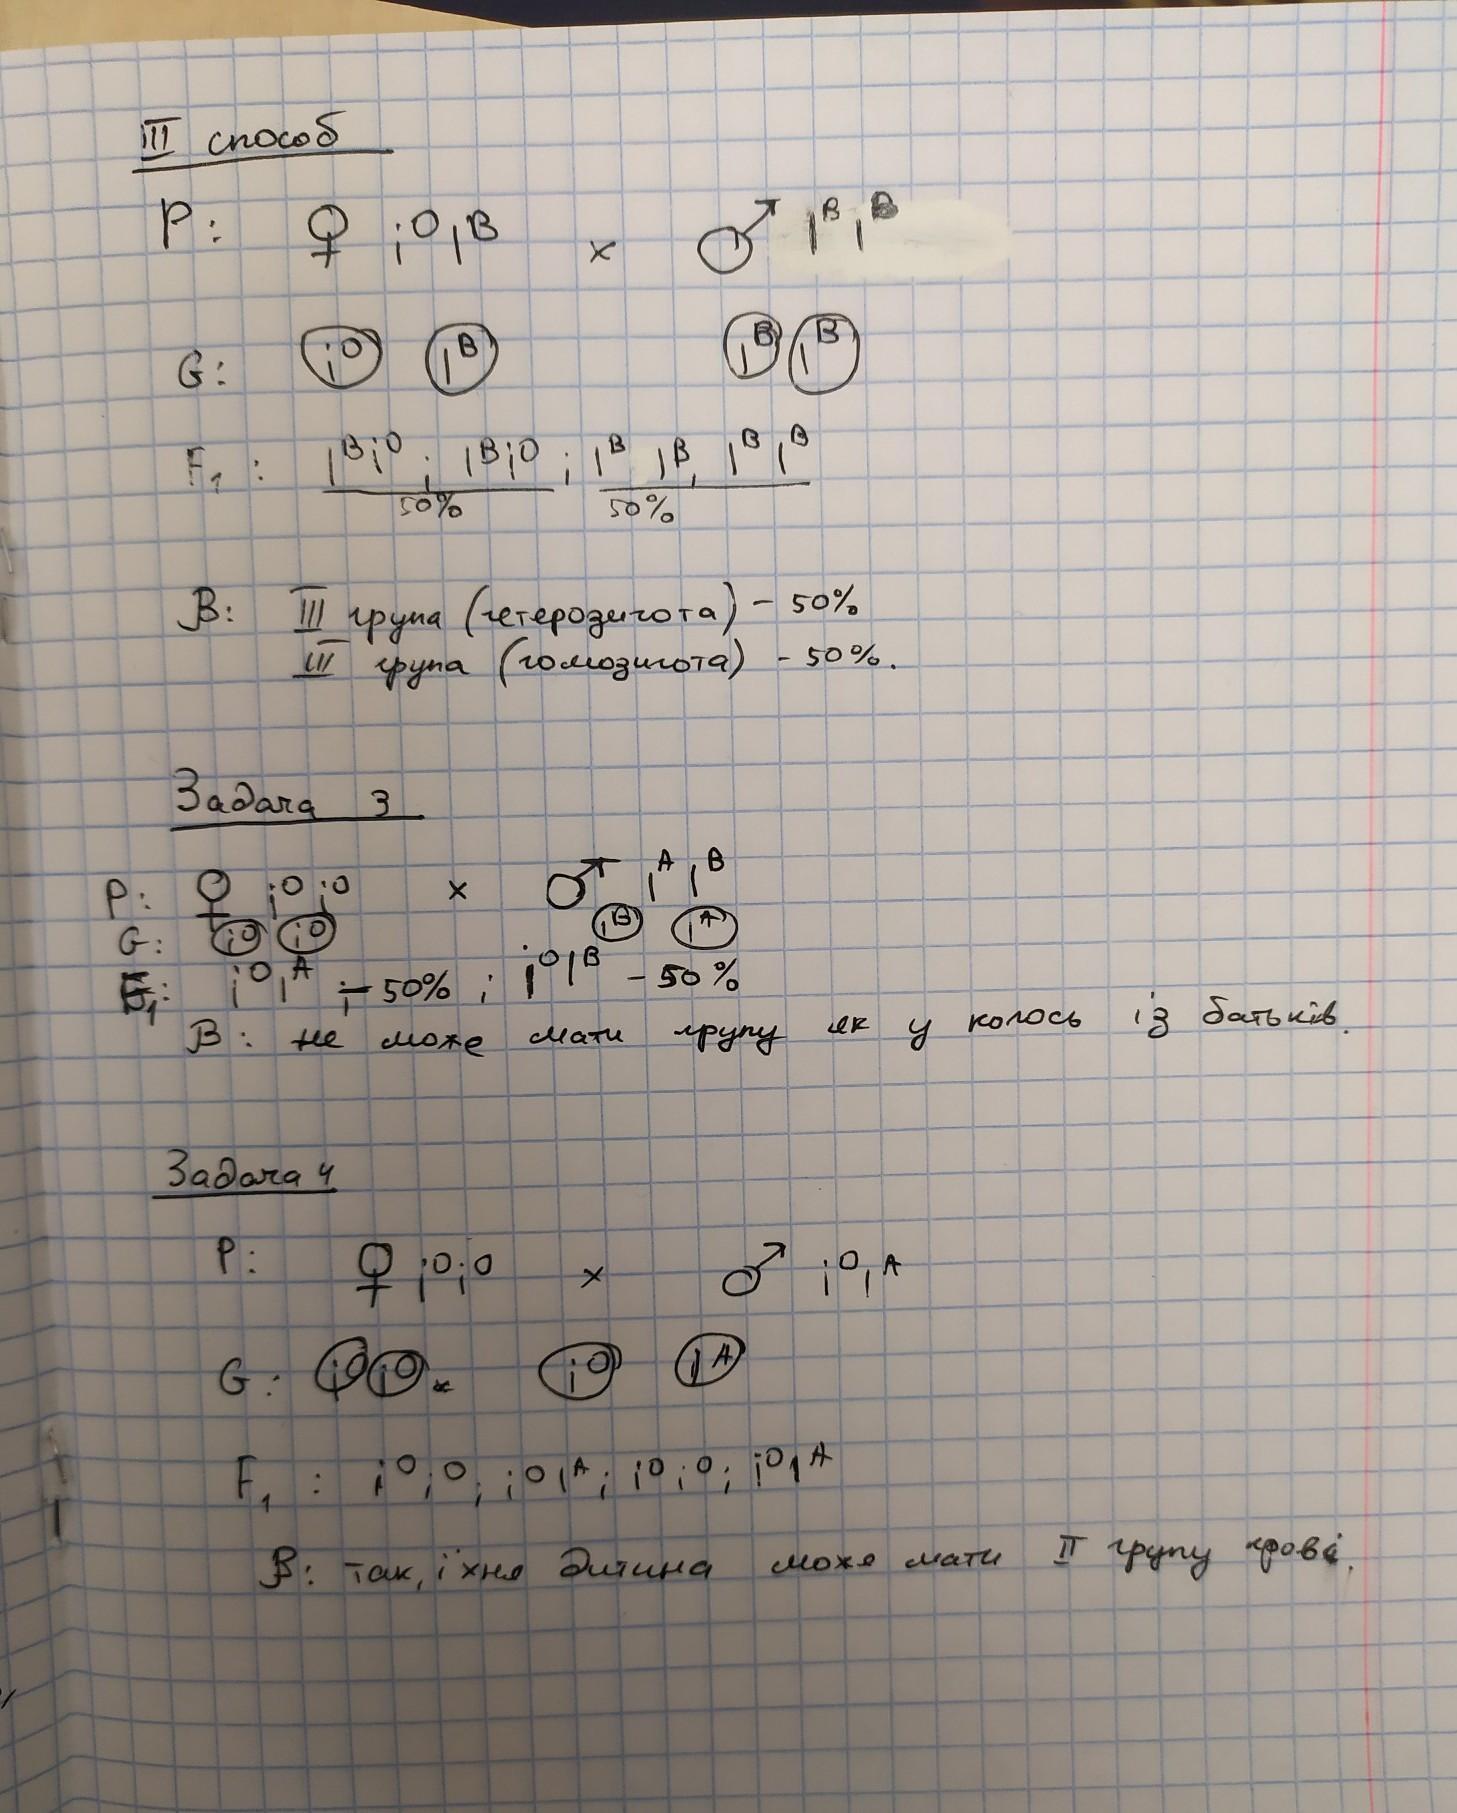 III спосіб
P: ♀ i⁰Iᴮ × ♂ IᴮIᴮ
G: i⁰ Iᴮ Iᴮ Iᴮ
F₁: Iᴮi⁰; Iᴮi⁰; Iᴮ Iᴮ, Iᴮ Iᴮ
50% 50%
В: III група (гетерозигота) - 50%
III група (гомозигота) - 50%.
Задача 3
P: ♀ i⁰i⁰ × ♂ IᴬIᴮ
G: i⁰ i⁰ Iᴮ Iᴬ
F₁: i⁰Iᴬ - 50%; i⁰Iᴮ - 50%
В: не може мати групу як у когось із батьків.
Задача 4
P: ♀ i⁰i⁰ × ♂ i⁰Iᴬ
G: i⁰ i⁰ × i⁰ Iᴬ
F₁: i⁰i⁰; i⁰Iᴬ; i⁰i⁰; i⁰Iᴬ
В: так, їхня дитина може мати II групу крові.